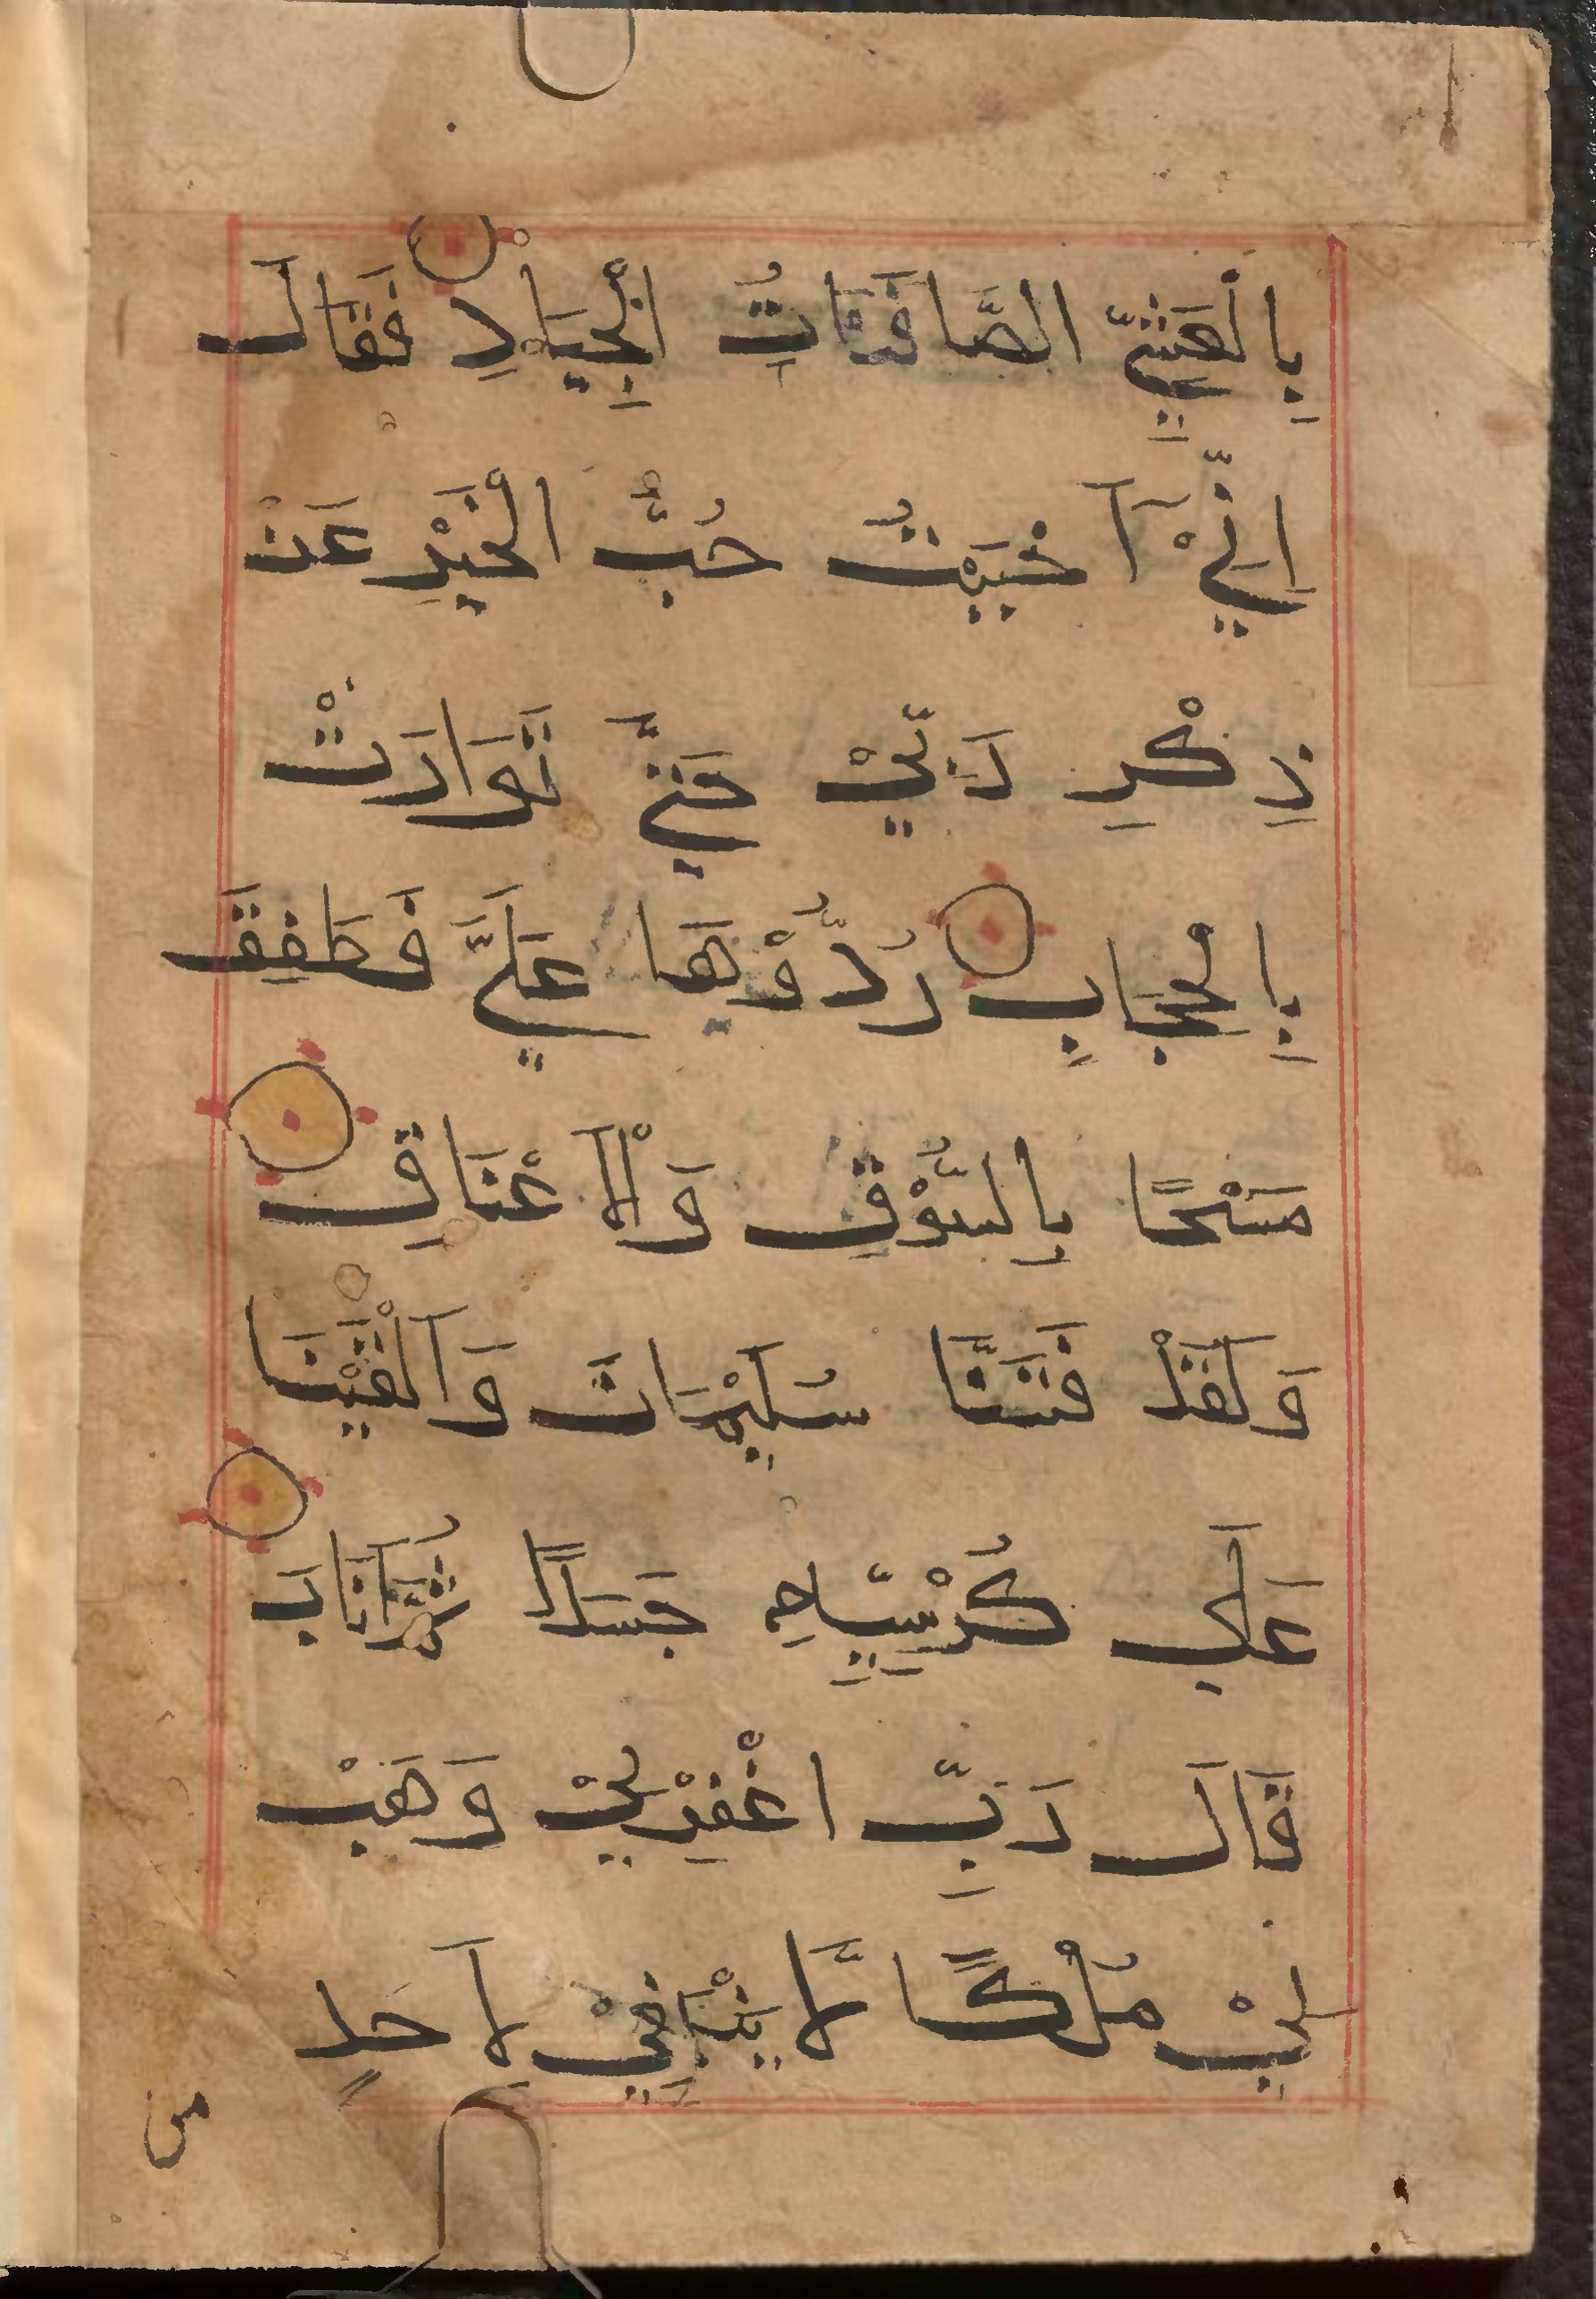 بِالْعَشِيِّ الصَّافِنَاتُ الْجِيَادِ فَقَالَ
اِنِّيْ اَحْبَبْتُ حُبَّ الْخَيْرِ عَنْ
ذِكْرِ رَبِّيْ حَتَّي تَوَارَتْ
بِالْحِجَابِ رُدُّوْهَا عَلَيَّ فَطَفِقَ
مَسْحًا بِالسُّوْقِ وَالْاَعْنَاقِ
وَلَقَدْ فَتَنَّا سُلَيْمَانَ وَاَلْقَيْنَا
عَلَي كُرْسِيِّهِ جَسَدًا ثُمَّ اَنَابَ
قَالَ رَبِّ اغْفِرْلِيْ وَهَبْ
لِيْ مُلْكًا لَّا يَنْبَغِيْ لِاَحَدٍ
من